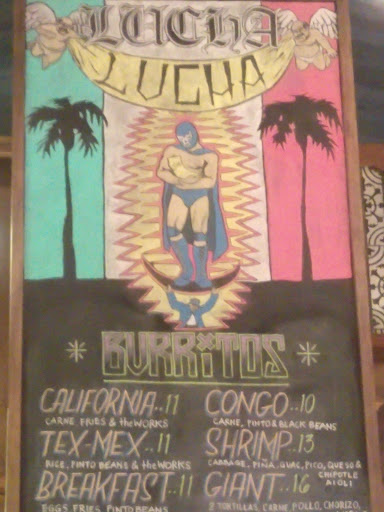 LUCHA
LUCHA
* BURRITOS *
CALIFORNIA..11
CARNE FRIES & the WORKS
TEX-MEX..11
RICE, PINTO BEANS & the WORKS
BREAKFAST..11
EGGS FRIES PINTO BEANS
CONGO..10
CARNE, PINTO & BLACK BEANS
SHRIMP..13
CABBAGE, PIÑA, GUAC, PICO, QUESO &
CHIPOTLE
AIOLI
GIANT..16
2 TORTILLAS, CARNE POLLO, CHORIZO,